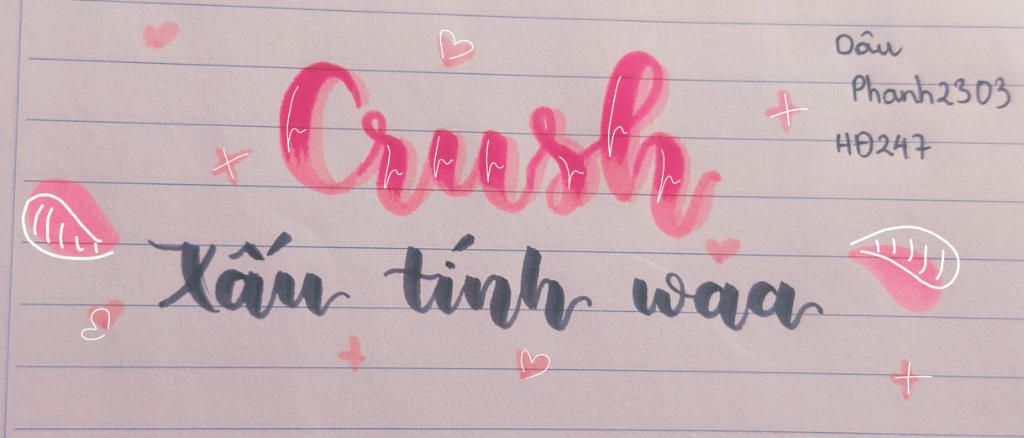 Crush
Xấu tính waa
Dâu
Phanh2303
HĐ247